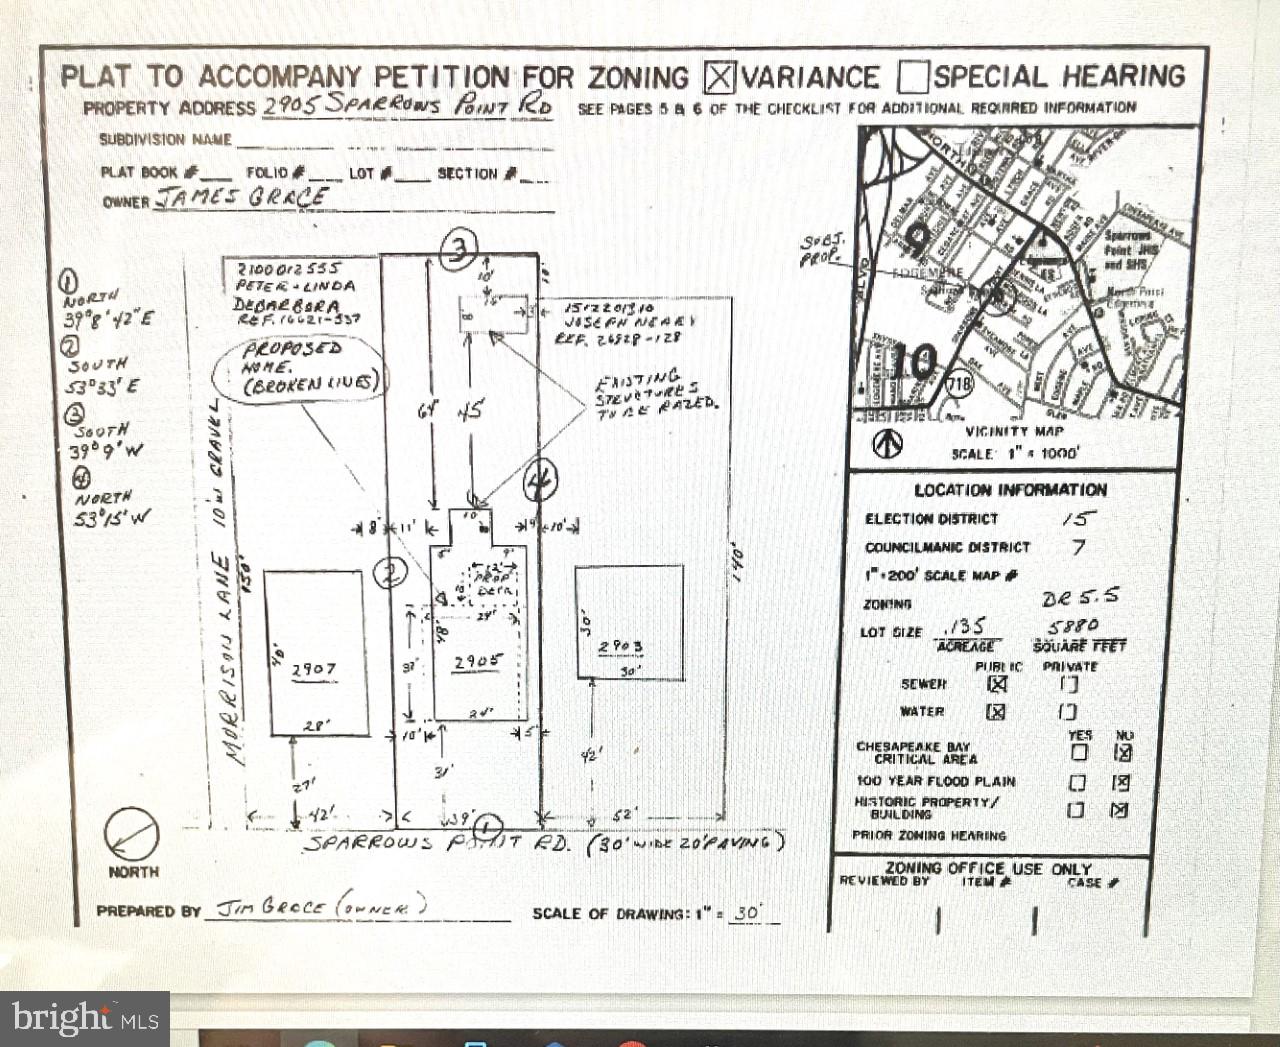 PLAT TO ACCOMPANY PETITION FOR ZONING VARIANCE SPECIAL HEARING
PROPERTY ADDRESS 2905 SPARROWS POINT RD SEE PAGES 5 & 6 OF THE CHECKLIST FOR ADDITIONAL REQUIRED INFORMATION
SUBDIVISION NAME
PLAT BOOK # FOLIO # LOT # SECTION #
OWNER JAMES GRACE
1
NORTH
39°8'42"E
2
SOUTH
53°33'E
3
SOUTH
39°9'W
4
NORTH
53°15'W
2100012555
PETER + LINDA
DEBARBORA
REF. 16621-337
PROPOSED
HOME.
(BROKEN LINES)
3
10'
15'
8'
3'
1512201310
JOSEPH NEARY
REF. 26828-128
EXISTING
STRUCTURES
TO BE RAZED.
64'
45'
4
2
10'
8'
11'
9'
10'
9'
12'
PROP
24'
48'
37'
2905
24'
10'
5'
31'
39'
1
MORRISON LANE 10'W GRAVEL
150'
40'
2907
28'
27'
42'
30'
2903
30'
42'
52'
140'
SPARROWS POINT RD. (30' WIDE 20' PAVING)
NORTH
PREPARED BY JIM GRACE (OWNER) SCALE OF DRAWING: 1" = 30'
SUBJ.
PROP.
EDGEMERE
9
10
718
Sparrows
Point JHS
and SHS
VICINITY MAP
SCALE: 1" = 1000'
LOCATION INFORMATION
ELECTION DISTRICT 15
COUNCILMANIC DISTRICT 7
1"=200' SCALE MAP #
ZONING DR 5.5
LOT SIZE .135 5880
ACREAGE SQUARE FEET
PUBLIC PRIVATE
SEWER
WATER
YES NO
CHESAPEAKE BAY
CRITICAL AREA
100 YEAR FLOOD PLAIN
HISTORIC PROPERTY/
BUILDING
PRIOR ZONING HEARING
ZONING OFFICE USE ONLY
REVIEWED BY ITEM # CASE #
bright MLS